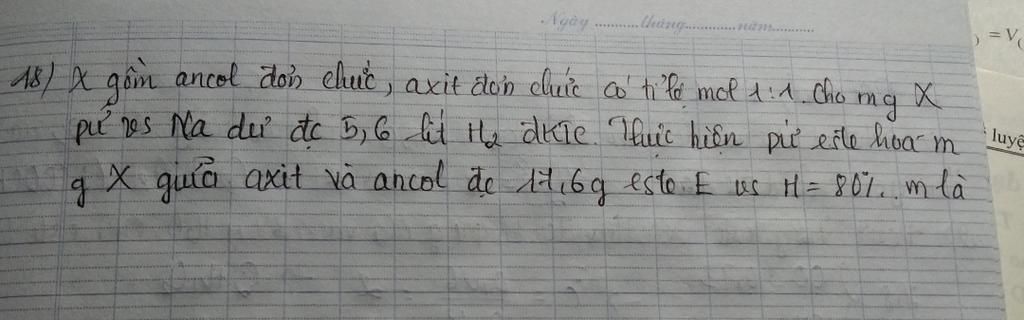 Ngày ..........tháng..........năm..........
) = V(
18) X gồm ancol đơn chức, axit đơn chức có tỉ lệ mol 1:1. Cho m g X
pứ vs Na dư đc 5,6 lít H2 đktc. Thực hiện pứ este hoá m
luyệ
g X giữa axit và ancol đc 17,6g este E vs H = 80%. m là